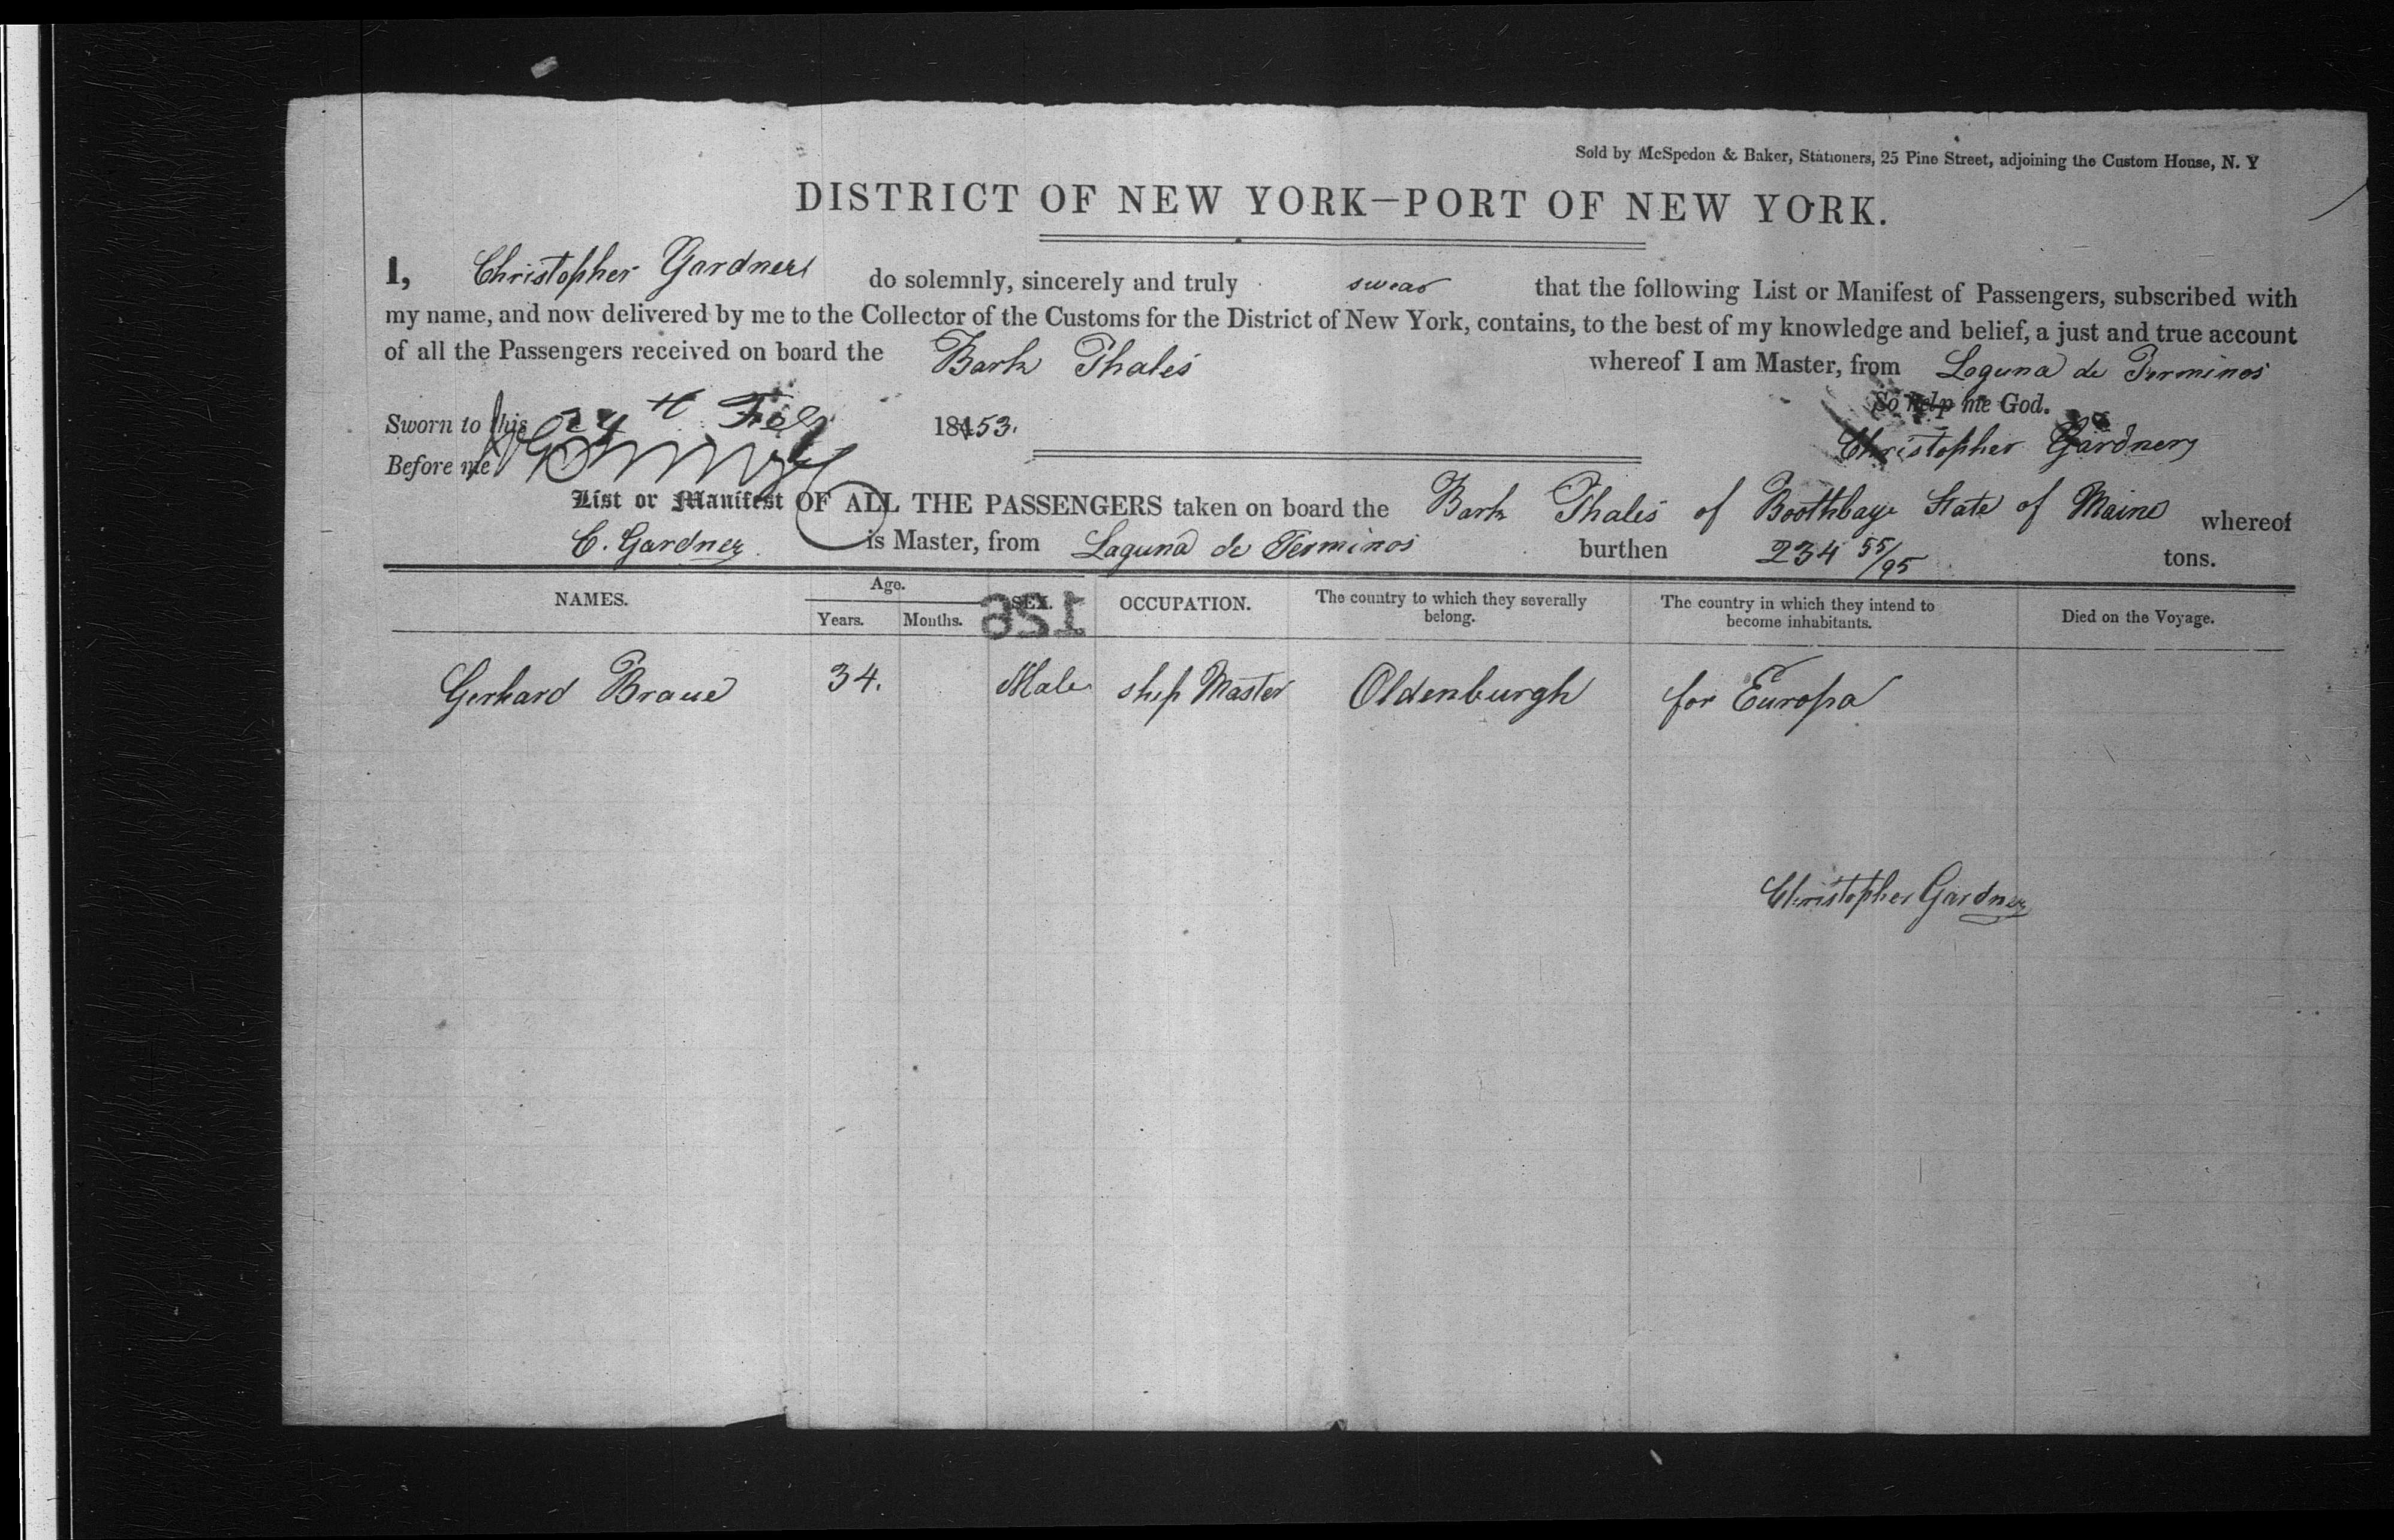 Sold by McSpedon & Baker, Stationers, 25 Pine Street, adjoining the Custom House, N. Y
DISTRICT OF NEW YORK—PORT OF NEW YORK.
I, Christopher Gardner do solemnly, sincerely and truly swear that the following List or Manifest of Passengers, subscribed with
my name, and now delivered by me to the Collector of the Customs for the District of New York, contains, to the best of my knowledge and belief, a just and true account
of all the Passengers received on board the Bark Thales whereof I am Master, from Laguna de Terminos
So help me God.
Sworn to this th Feb 1853.
Christopher Gardner
Before me
List or Manifest OF ALL THE PASSENGERS taken on board the Bark Thales of Boothbay State of Maine whereof
C. Gardner is Master, from Laguna de Terminos burthen 234 55/95 tons.
NAMES. Age. Years. Months. SEX. OCCUPATION. The country to which they severally belong. The country in which they intend to become inhabitants. Died on the Voyage.
126
Gerhard Braue 34. Male ship Master Oldenburgh for Europa
Christopher Gardner